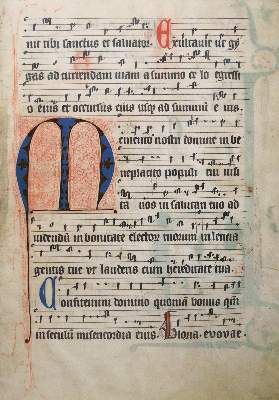 nit tibi sanctus et saluator. Exultauit ut gy
gas ad currendam uiam a summo celo egressi
o eius et occursus eius usqȝ ad summum eius.
Memento nostri domine in be
neplacito populi tui uisi
ta nos in salutari tuo ad
uidendum in bonitate electorum tuorum in leticia
gentis tue ut lauderis cum hereditate tua.
Confitemini domino quoniam bonus qm̄
in seculum misericordia eius. Gloria. evovae.